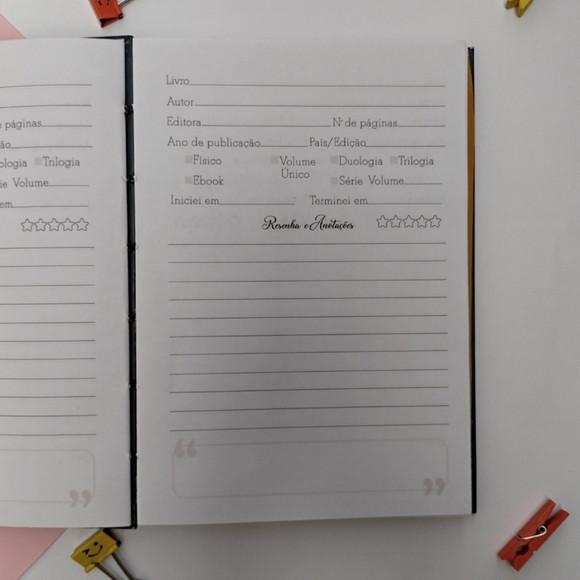 páginas
ão
ologia Trilogia
ie Volume
em
Livro
Autor
Editora Nº de páginas
Ano de publicação País/Edição
Físico Volume Único Duologia Trilogia
Ebook Série Volume
Iniciei em Terminei em
Resenha e Anotações